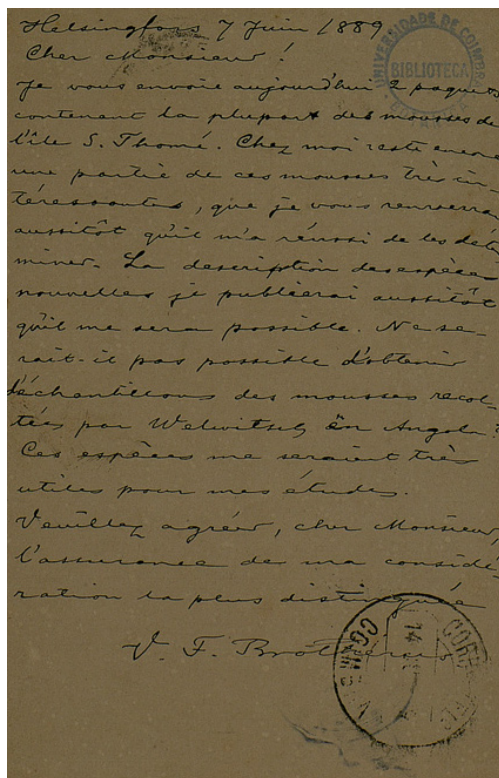 Helsingfors 7 Juin 1889
Cher Monsieur!
Je vous envoie aujourd'hui 2 paquets
contenant la plupart des mousses de
l'île S. Thomé. Chez moi reste encore
une partie de ces mousses très in-
téressantes, que je vous renverrai
aussitôt qu'il m'a réussi de les déter
miner. La description des espèces
nouvelles je publierai aussitôt
qu'il me sera possible. Ne se-
rait-il pas possible d'obtenir
d'échantillons des mousses recol-
tées par Welwitsch en Angola?
Ces espèces me seraient très
utiles pour mes études.
Veuillez agréer, cher Monsieur,
l'assurance de ma considé
ration la plus distinguée
V. F. Brotherus
UNIVERSIDADE DE COIMBRA
BIBLIOTECA
BOTANICA
CORREIO
14
COIMBRA